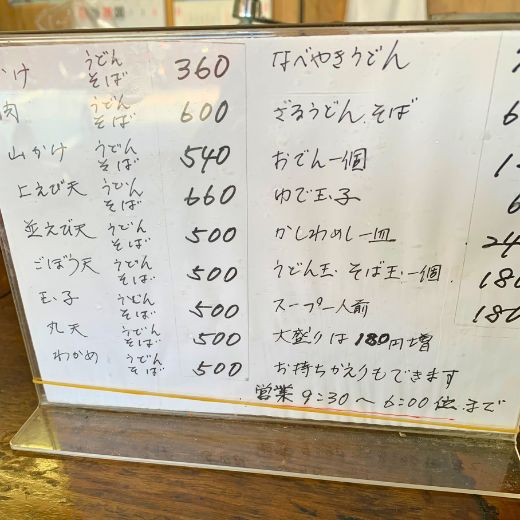 かけ うどん そば 360
肉 うどん そば 600
山かけ うどん そば 540
上えび天 うどん そば 660
並えび天 うどん そば 500
ごぼう天 うどん そば 500
玉子 うどん そば 500
丸天 うどん そば 500
わかめ うどん そば 500
なべやきうどん
ざるうどん、そば
おでん一個
ゆで玉子
かしわめし一皿
うどん玉、そば玉、一個 180
スープ一人前 180
大盛りは180円増
お持ちかえりもできます
営業 9:30〜6:00位まで